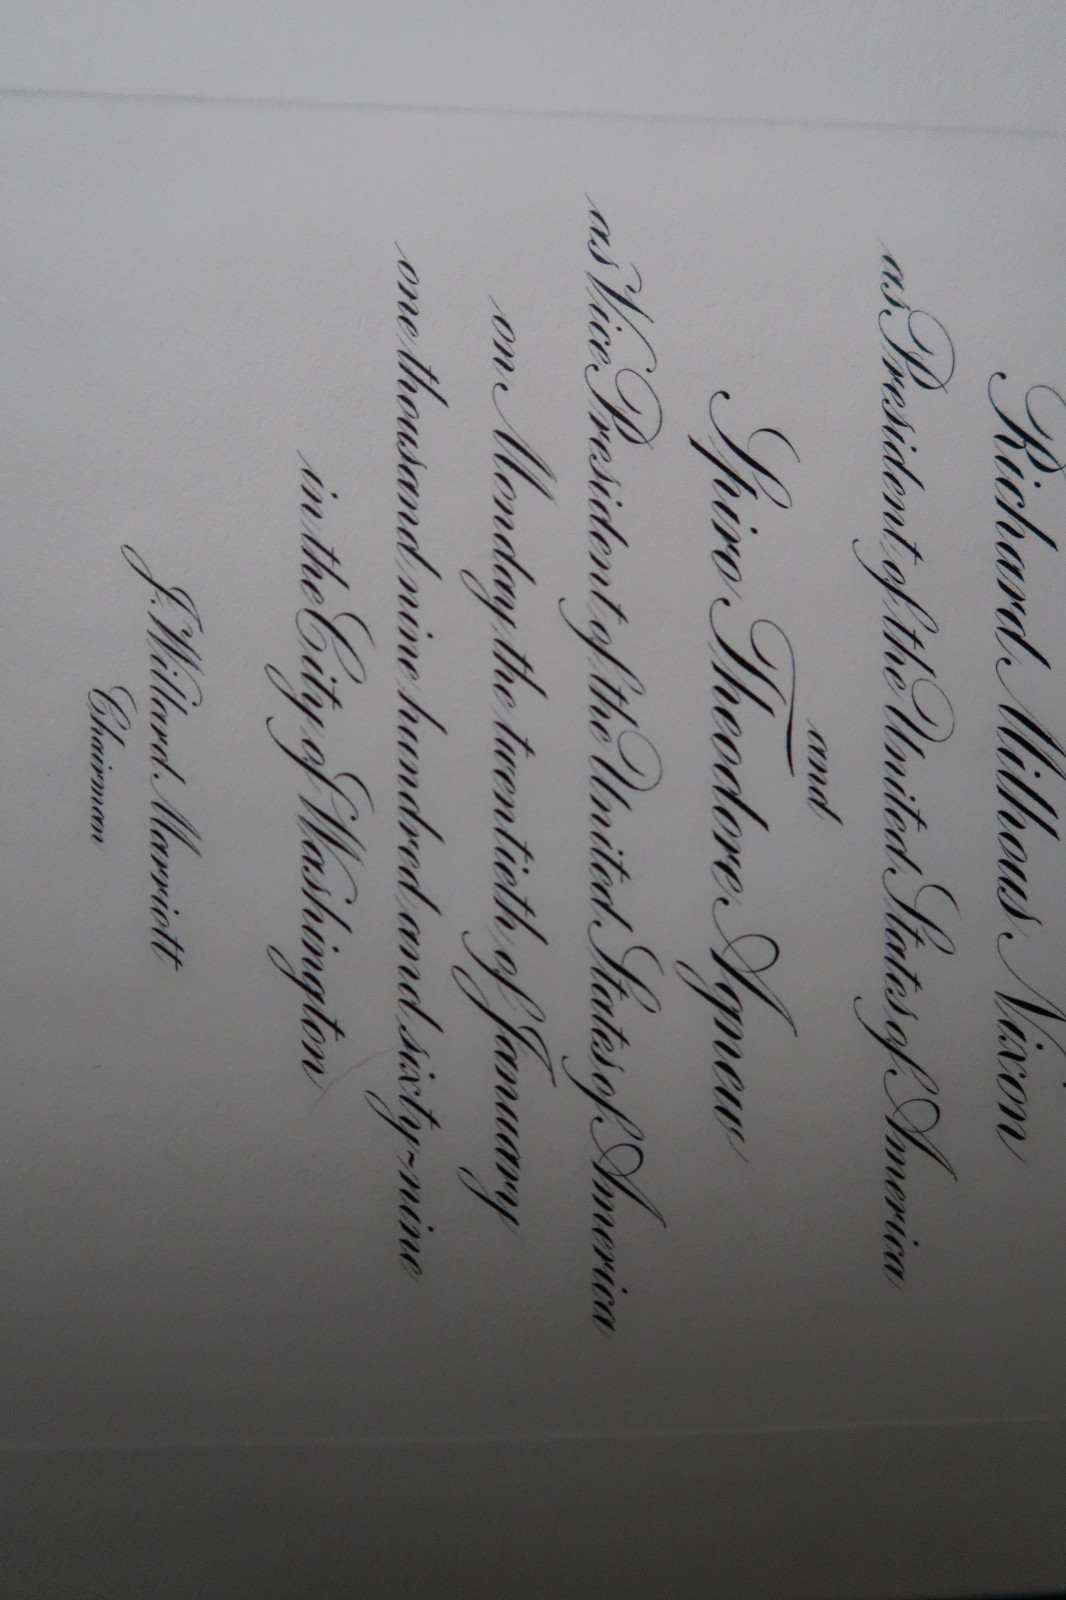 Richard Milhous Nixon
as President of the United States of America
and
Spiro Theodore Agnew
as Vice President of the United States of America
on Monday the twentieth of January
one thousand nine hundred and sixty-nine
in the City of Washington
J. Willard Marriott
Chairman